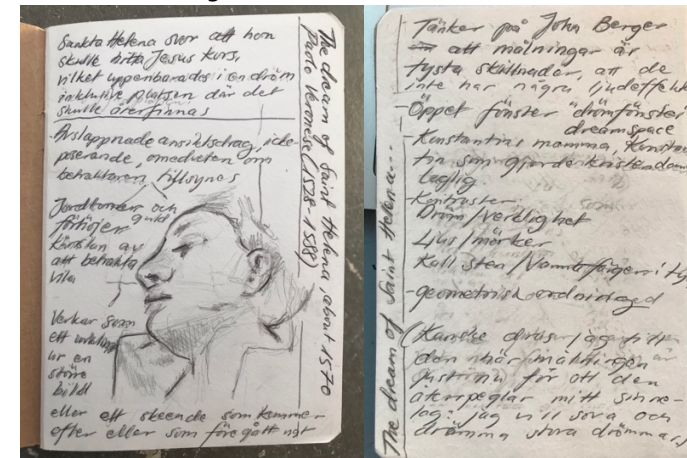 Sankta Helena svor att hon
skulle hitta Jesus kors,
vilket uppenbarades i en dröm
inklusive platsen där det
skulle återfinnas
Avslappnade ansiktsdrag, icke-
poserande, omedveten om
betraktaren tillsynes
Jordtoner och
guld
förhöjer
känslan av
att betrakta
vila
Verkar som
ett
ur en
större
bild
eller ett skeende som kommer
efter eller som föregått
The dream of Saint Helena about 1570
Paolo Veronese (1528-1588)
Tänker på John Berger
att målningar är
tysta skillnader, att de
inte har några ljudeffekt
-Öppet fönster "drömfönster"
dreamspace
-Konstantins mamma,
tin som gjorde kristendom
laglig
-Kontraster
Dröm/verklighet
Ljus/mörker
Kall sten /Varma färger i
-geometrisk ordning
(Kanske dras jag till
den här målningen
just nu för att den
återspeglar mitt
läge: Jag vill sova och
drömma stora drömmar)
The dream of Saint Helena...